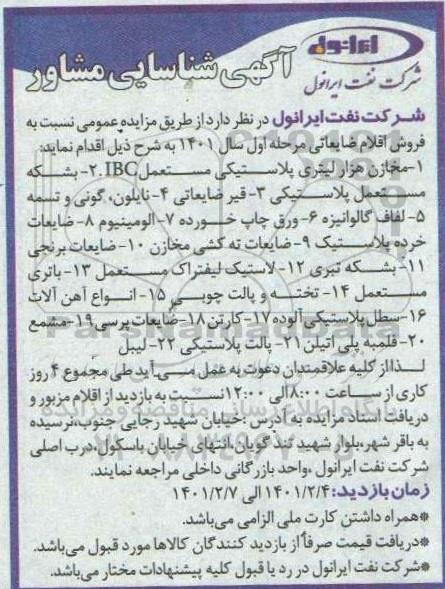 ایرانول
شرکت نفت ایرانول
آگهی شناسایی مشاور
شرکت نفت ایرانول در نظر دارد از طریق مزایده عمومی نسبت به
فروش اقلام ضایعاتی مرحله اول سال ۱۴۰۱ به شرح ذیل اقدام نماید:
۱-مخازن هزار لیتری پلاستیکی مستعمل IBC ۲- بشکه
مستعمل پلاستیکی ۳- قیر ضایعاتی ۴- نایلون، گونی و تسمه
۵- لفاف گالوانیزه ۶- ورق چاپ خورده ۷- آلومینیوم ۸- ضایعات
خرده پلاستیک ۹- ضایعات ته کشی مخازن ۱۰- ضایعات برنجی
۱۱- بشکه تبری ۱۲- لاستیک لیفتراک مستعمل ۱۳- باتری
مستعمل ۱۴- تخته و پالت چوبی ۱۵- انواع آهن آلات
۱۶-سطل پلاستیکی آلوده ۱۷- کارتن ۱۸- ضایعات پرسی ۱۹- مشمع
۲۰- قلمبه پلی اتیلن ۲۱- پالت پلاستیکی ۲۲- لیبل
لذا از کلیه علاقمندان دعوت به عمل می‌آید طی مجموع ۴ روز
کاری از ساعت ۸:۰۰ الی ۱۲:۰۰ نسبت به بازدید از اقلام مزبور و
دریافت اسناد مزایده به آدرس :خیابان شهید رجایی جنوب،نرسیده
به باقر شهر،بلوار شهید تندگویان،انتهای خیابان باسکول،درب اصلی
شرکت نفت ایرانول ،واحد بازرگانی داخلی مراجعه نمایند.
زمان بازدید: ۱۴۰۱/۲/۴ الی ۱۴۰۱/۲/۷
*همراه داشتن کارت ملی الزامی می‌باشد.
*دریافت قیمت صرفاً از بازدید کنندگان کالاها مورد قبول می‌باشد.
*شرکت نفت ایرانول در رد یا قبول کلیه پیشنهادات مختار می‌باشد.